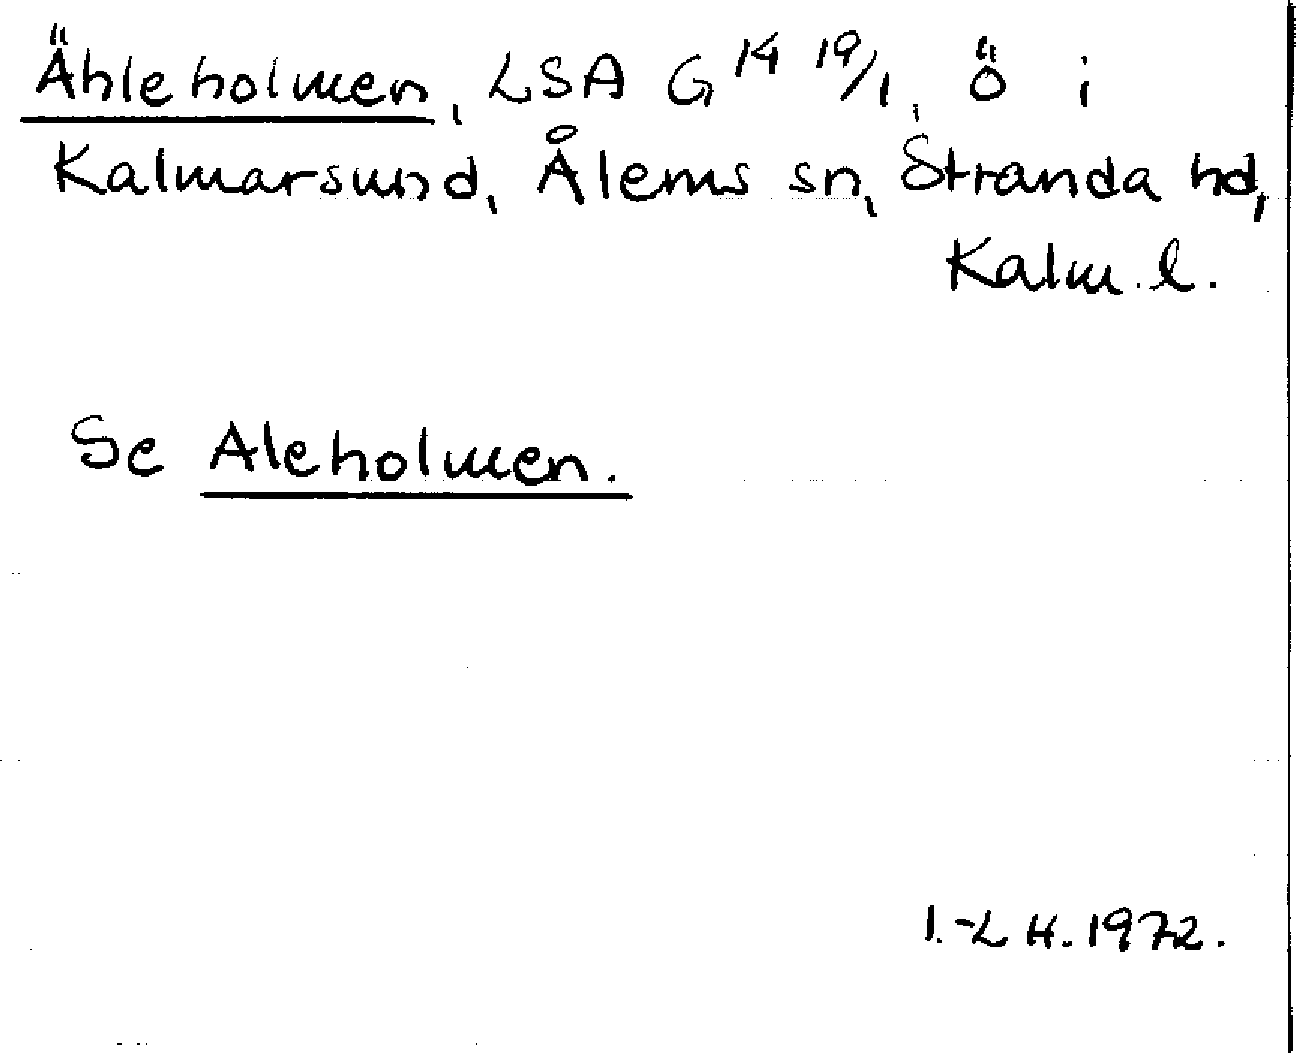 Ähleholmen, LSA G 14 19/1, ö i
Kalmarsund, Ålems sn, Stranda hd,
Kalm. l.
Se Aleholmen.
I.-L H. 1972.